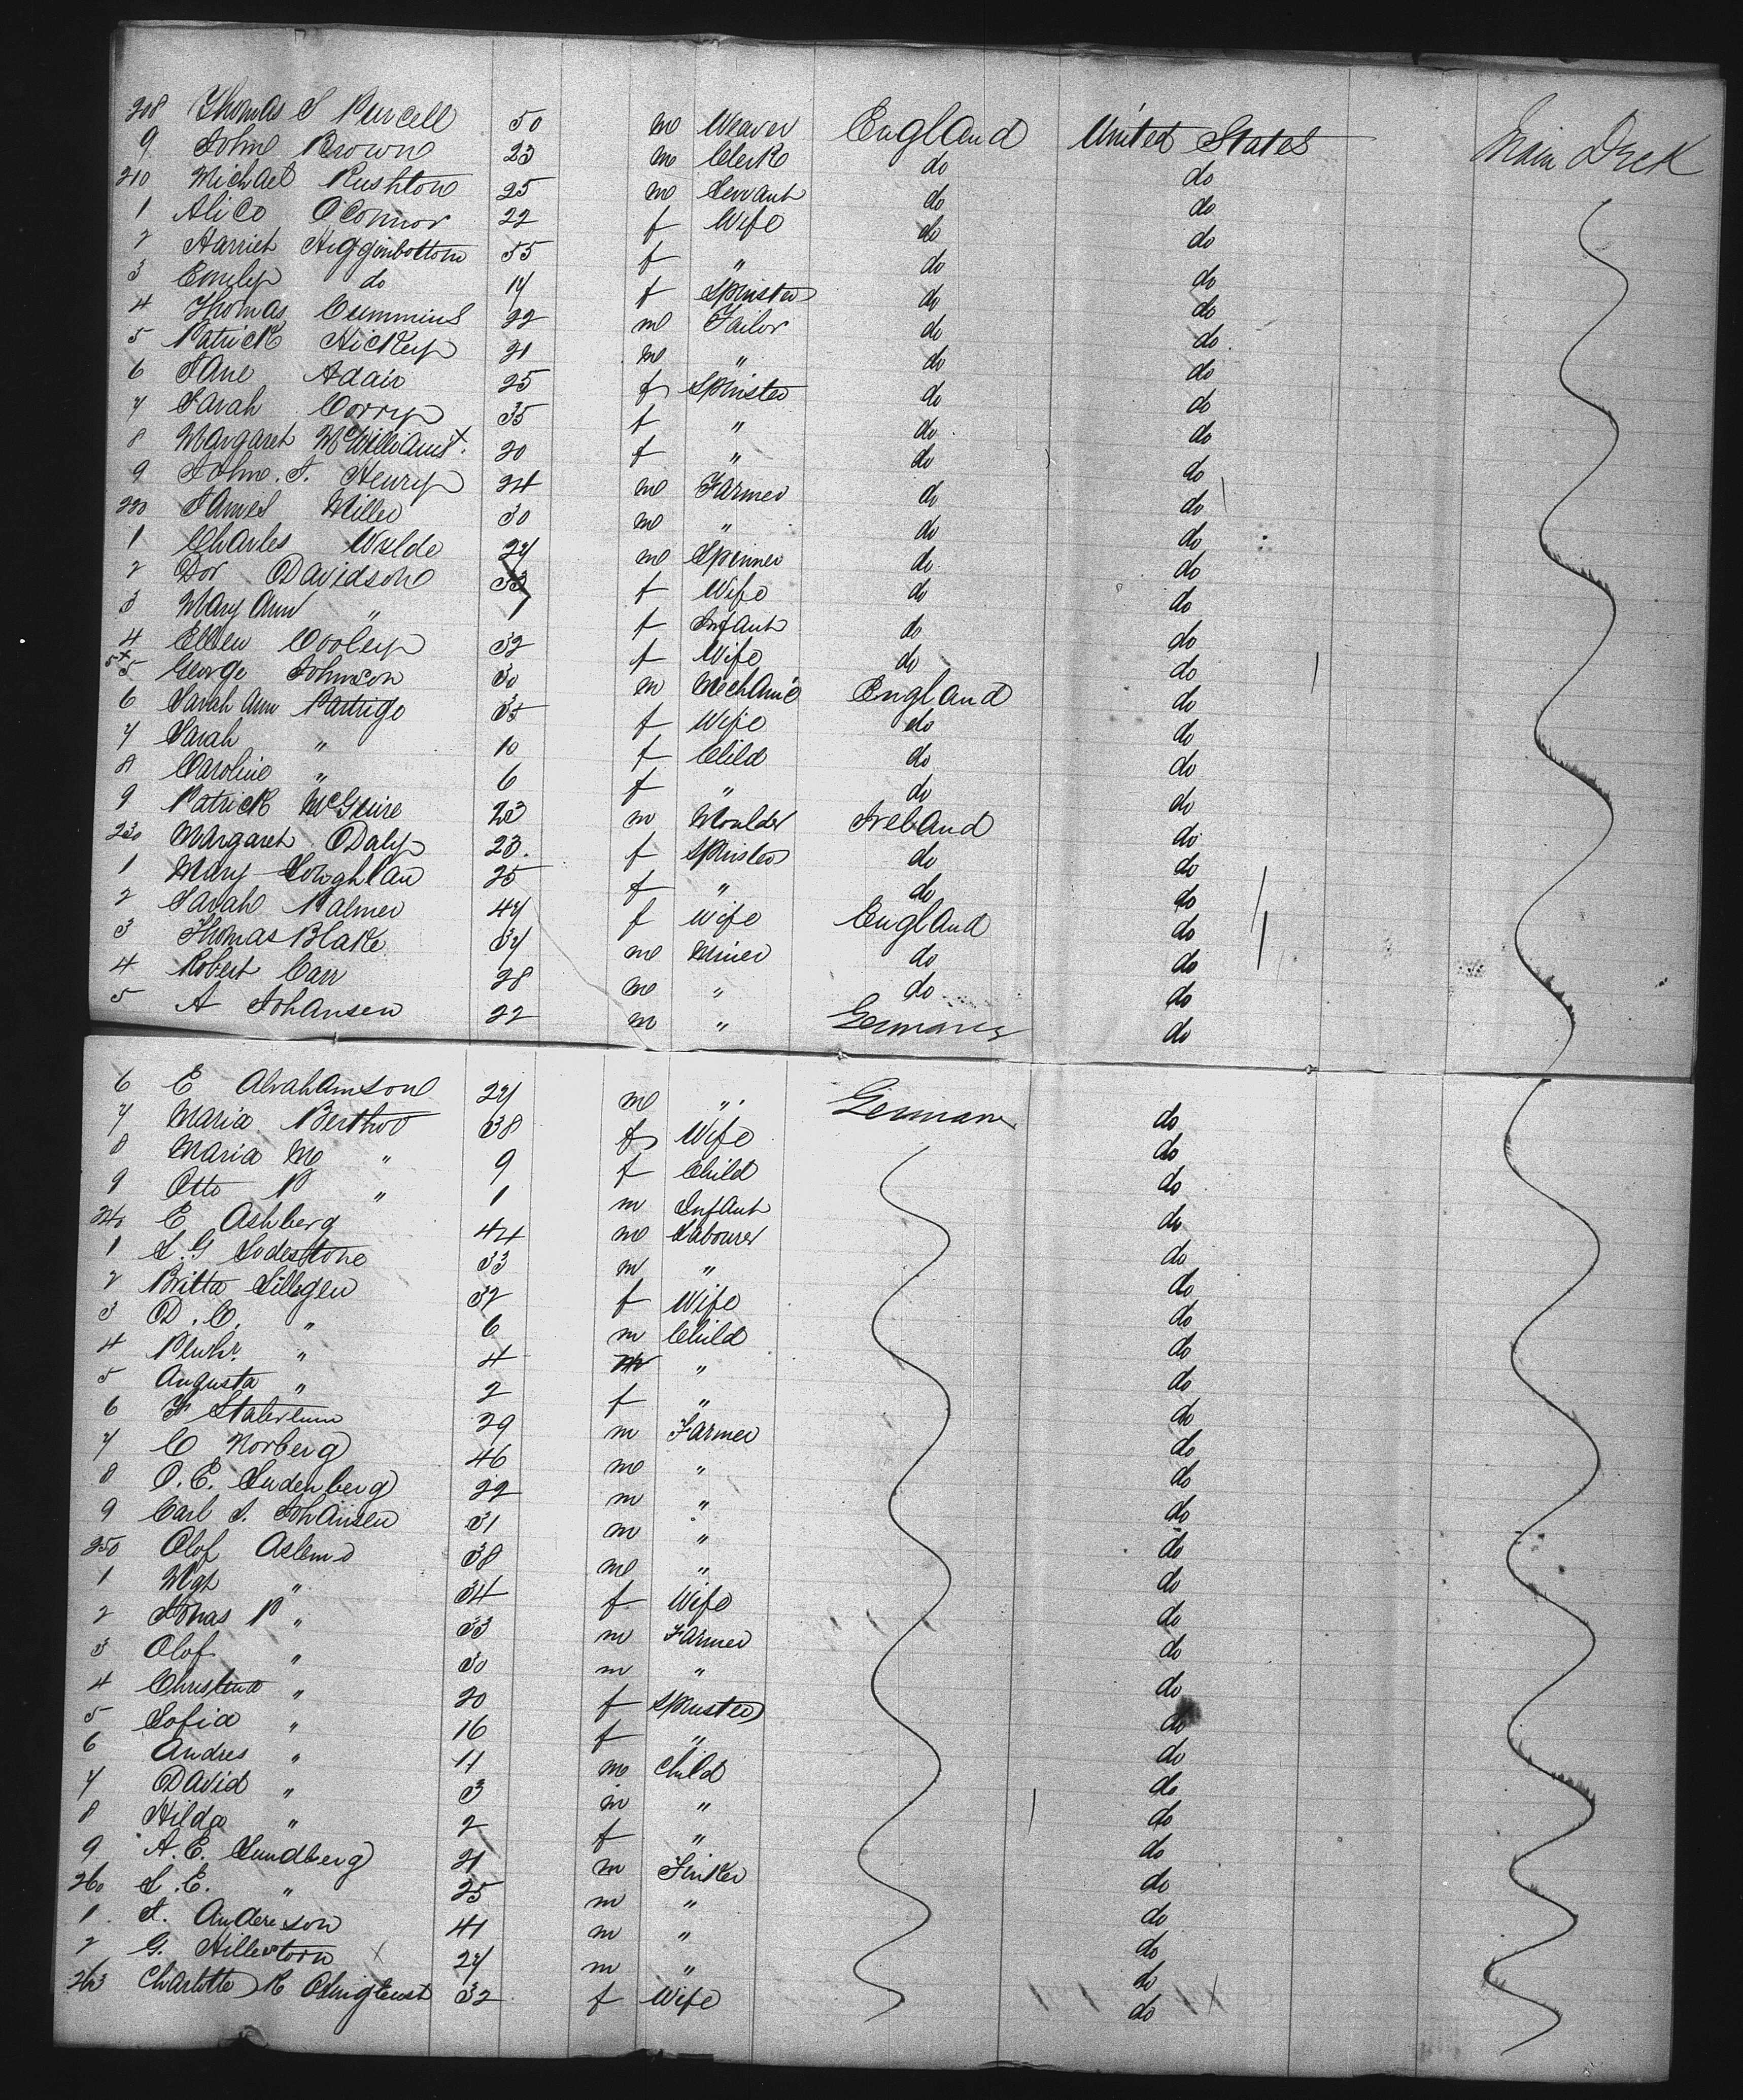 208 Thomas S Purcell 50 m Weaver England United States Main Deck
9 John Brown 23 m Clerk do do
210 Michael Rushton 25 m Servant do do
1 Alice O'Connor 22 f Wife do do
2 Harriet Higginbottom 55 f " do do
3 Emily do 17 f Spinster do do
4 Thomas Cummins 22 m Tailor do do
5 Patrick Hickey 21 m " do do
6 Jane Adair 25 f Spinster do do
7 Sarah Corry 35 f " do do
8 Margaret McWilliams 20 f " do do
9 John. J. Henry 24 m Farmer do do
220 James Miller 30 m " do do
1 Charles Wilde 27 m Spinner do do
2 Dor Davidson 33 f Wife do do
3 Mary Ann " 1 f Infant do do
4 Ellen Cooley 32 f Wife do do
5 George Johnson 30 m Mechanic England do
6 Sarah Ann Partrige 35 f Wife do do
7 Sarah " 10 f Child do do
8 Caroline " 6 f " do do
9 Patrick McGuire 23 m Moulder Ireland do
230 Margaret O'Daly 23. f Spinster do do
1 Mary Loughlan 25 f " do do
2 Sarah Palmer 47 f Wife England do
3 Thomas Blake 37 m Miner do do
4 Robert Carr 28 m " do do
5 A Johansen 22 m " Germany do
6 E Abrahamson 27 m " Germany do
7 Maria 38 f Wife do
8 Maria M " 9 f Child do
9 Otto P " 1 m Infant do
240 E Ashberg 44 m Labourer do
1 L. G Lodestone 33 m " do
2 Britta Lillegen 32 f Wife do
3 D. C. " 6 m Child do
4 " 4 m " do
5 Augusta " 2 f " do
6 F 29 m Farmer do
7 C Norberg 46 m " do
8 O. E. Ludenberg 22 m " do
9 Carl J. Johansen 31 m " do
250 Olof 38 m " do
1 Mgt " 34 f Wife do
2 Jonas P " 33 m Farmer do
3 Olof " 30 m " do
4 Christina " 20 f Spinster do
5 Sofia " 16 f " do
6 Andres " 11 m Child do
7 David " 3 m " do
8 Hilda " 2 f " do
9 A. E. Lundberg 21 m Tinker do
260 L. E. " 25 m " do
1 J. Anderson 41 m " do
2 G. Hillestorn 27 m " do
263 Charlotte K 32 f Wife do